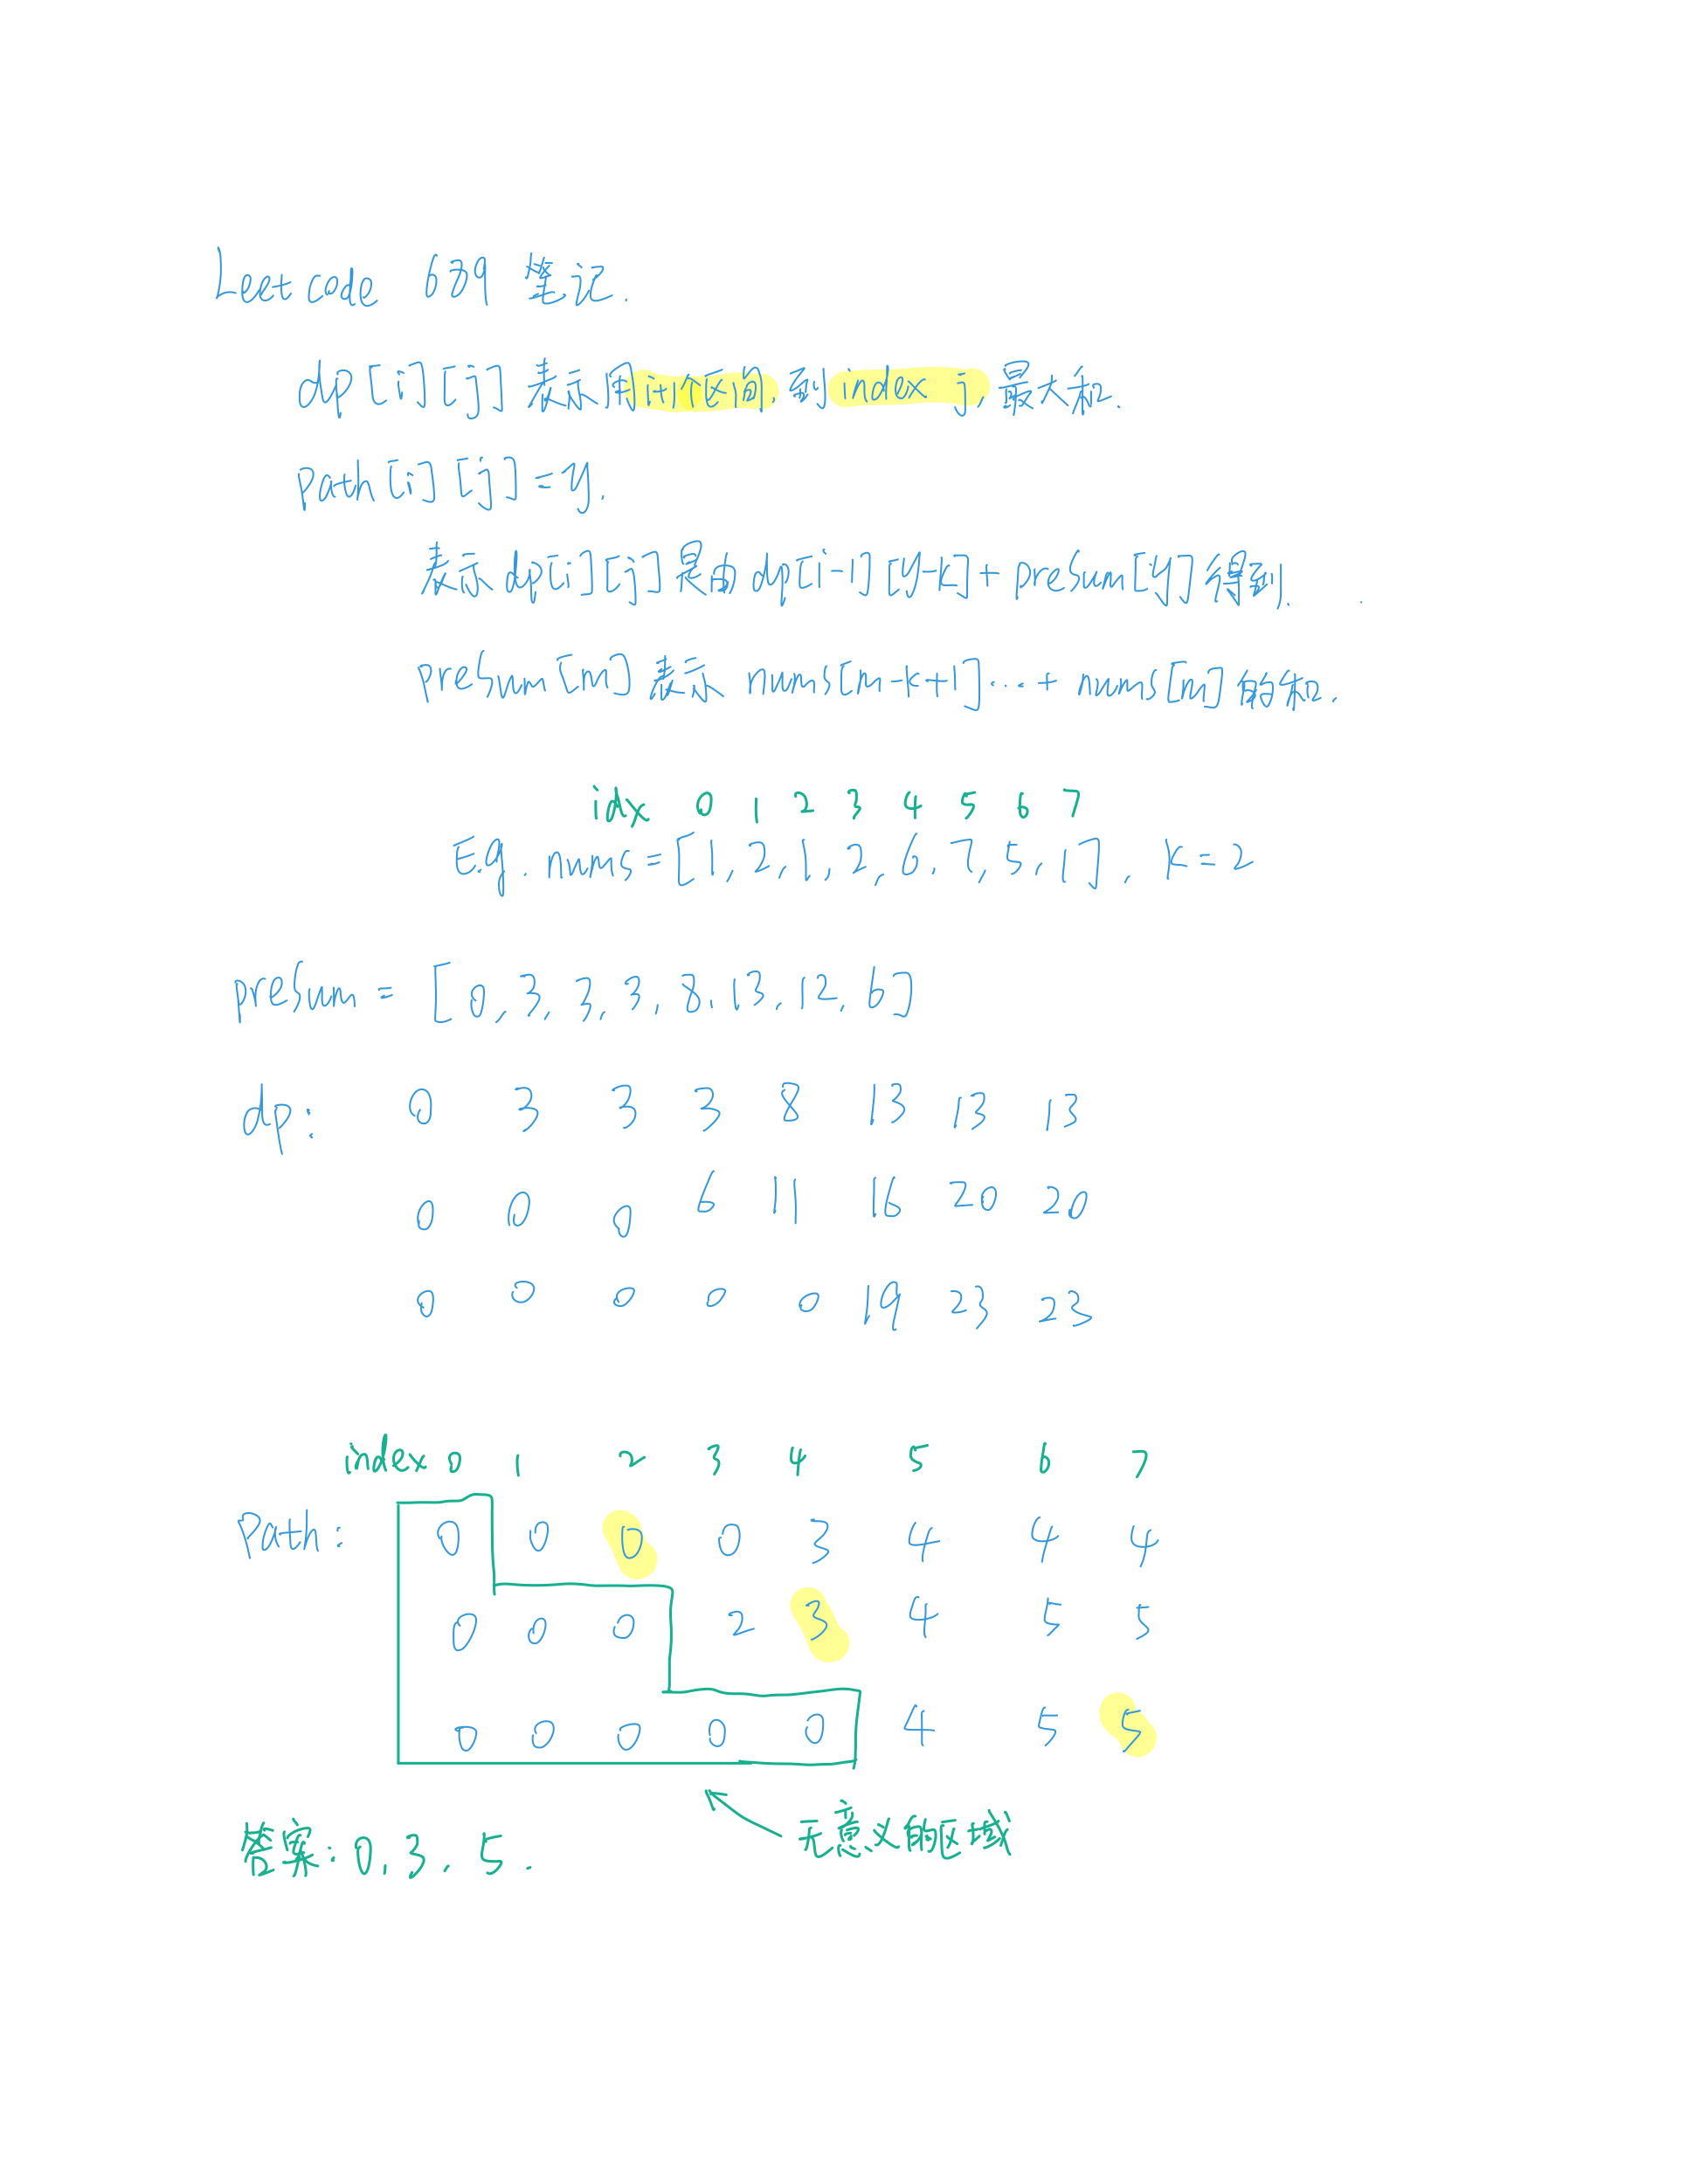 Leetcode 689 笔记.
dp[i][j] 表示用 i+1 个区间, 到 index j, 最大和.
path[i][j] = y.
表示 dp[i][j] 是由 dp[i-1][y-k] + preSum[y] 得到.
preSum[m] 表示 num[m-k+1]...+ nums[m] 的和.
idx 0 1 2 3 4 5 6 7
Eg. nums = [1, 2, 1, 2, 6, 7, 5, 1], k = 2
preSum = [0, 3, 3, 3, 8, 13, 12, 6]
dp: 0 3 3 3 8 13 13 13
0 0 0 6 11 16 20 20
0 0 0 0 0 19 23 23
index 0 1 2 3 4 5 6 7
Path: 0 0 0 0 3 4 4 4
0 0 0 2 3 4 5 5
0 0 0 0 0 4 5 5
无意义的区域
答案: 0, 3, 5.